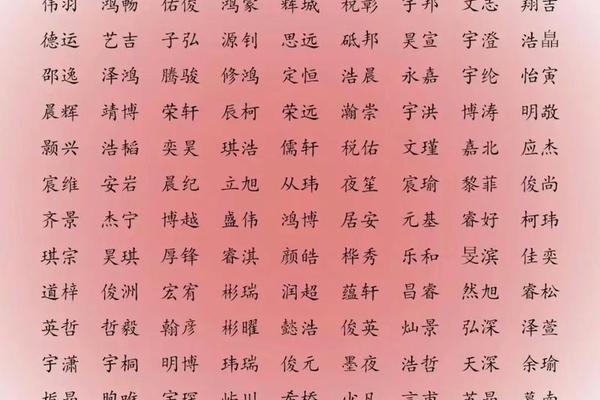 伟羽 鸿畅 佑俊 鸿豪 辉城 税彰 宇邦 文志 翔吉
德运 艺吉 子弘 源钊 思远 砥邦 昊宣 宇澄 浩皛
邵逸 泽鸿 腾骏 修鸿 定恒 浩晨 永嘉 宇纶 怡寅
晨辉 靖博 荣轩 辰柯 荣远 瀚崇 宇洪 博涛 明敬
颢兴 浩韬 奕昊 琪浩 儒轩 税佑 文瑾 嘉北 应杰
宸维 安岩 晨纪 立旭 从玮 夜笙 宸瑜 黎菲 俊尚
齐景 杰宁 博越 盛伟 鸿博 居安 元基 睿好 柯玮
琪宗 昊琪 厚锋 睿淇 颜皓 桦秀 乐和 旻滨 佳奕
道梓 俊洲 宏宥 彬瑞 润超 蕴轩 昌睿 然旭 睿松
英哲 哲毅 翰彦 彬曜 懿浩 俊英 灿景 弘深 泽萱
宇潇 宇桐 明博 玮瑞 俊元 墨夜 浩哲 天深 余瑜